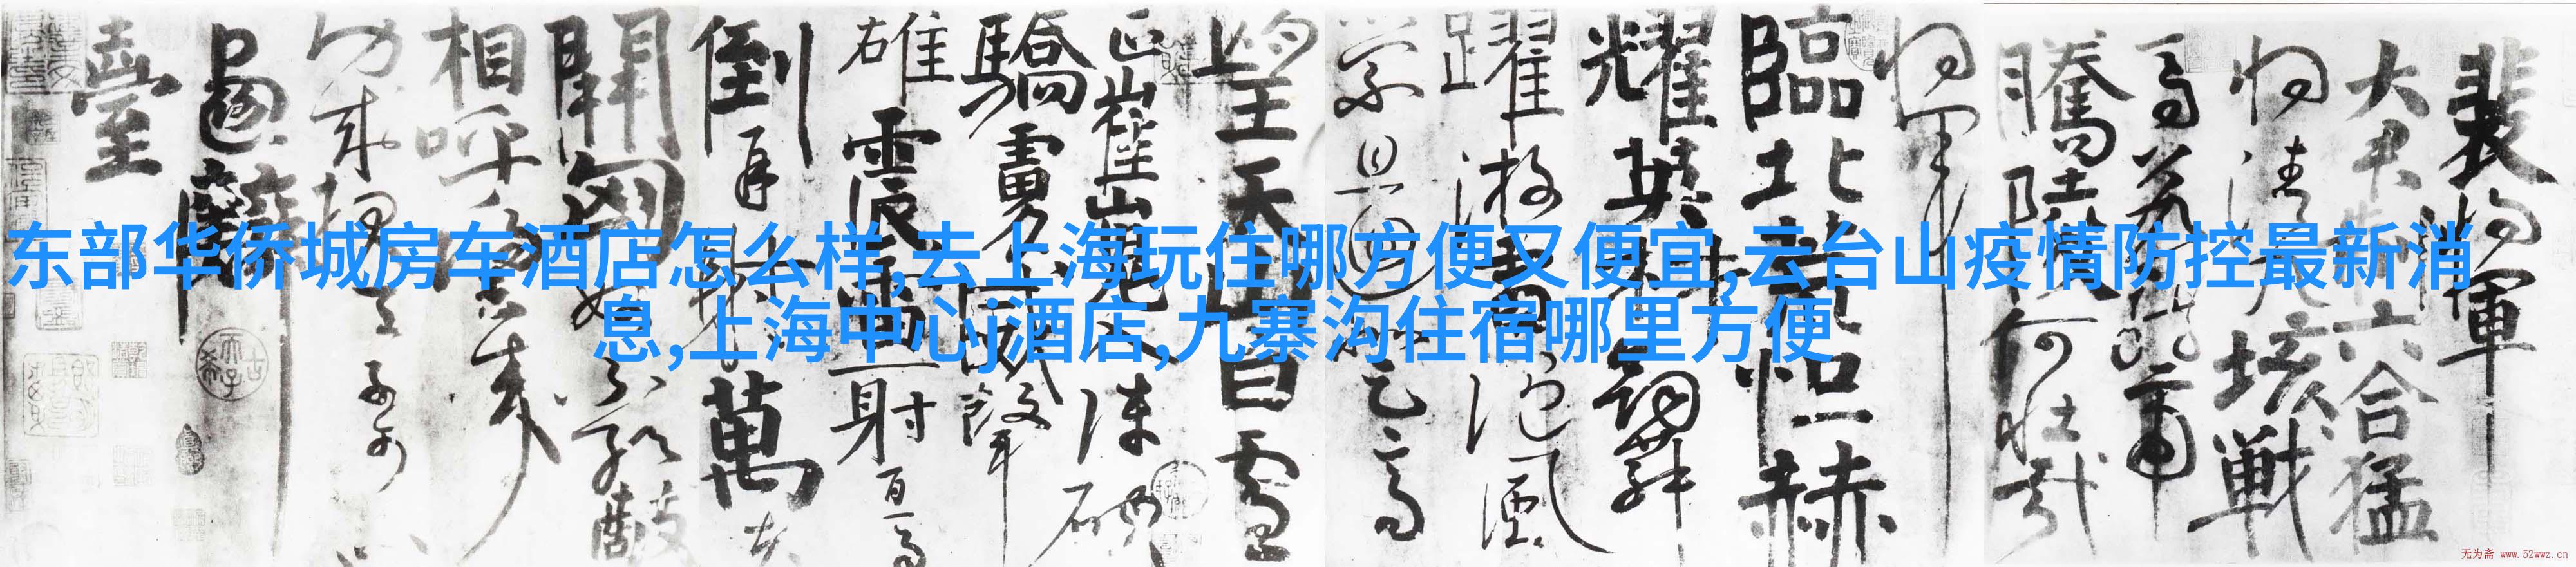 东部华侨城房车酒店怎么样,去上海玩住哪方便又便宜,云台山疫情防控最新消
息,上海中心j酒店,九寨沟住宿哪里方便
裴将军
大君制六合猛
将清九垓战
马若龙虎
腾陵何壮哉
将军
临北荒恒赫
耀英材剑舞
跃游电随风
萦且回
登高
望天山白雪
正崔嵬入阵破
骄虏威声
雄震雷一射百马
倒再射万夫
开匈奴不敢敌
相呼归去来
功成报天子可
以画麟
台
无为斋 www.52wwz.cn